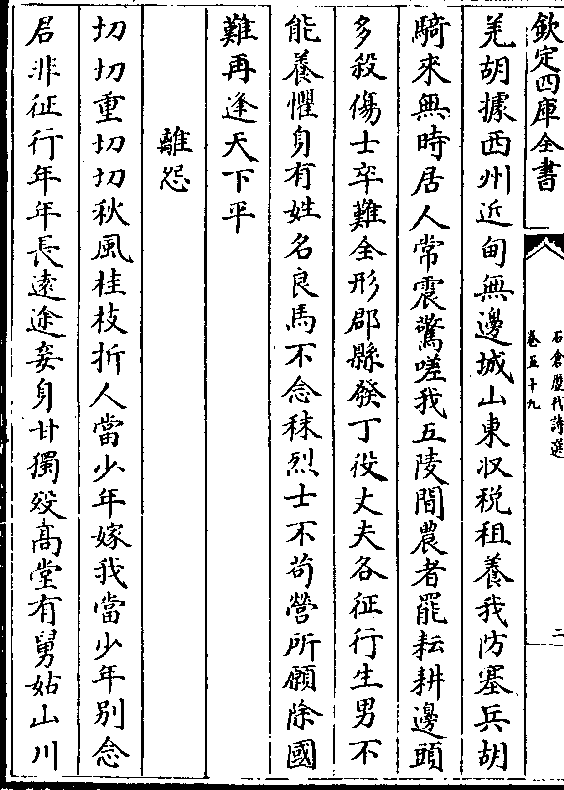 欽定四庫全書
石倉歷代詩選
卷五十九
二
羌胡據西州近甸無邊城山東收税租養我防塞兵胡
騎來無時居人常震驚嗟我五陵間農者罷耘耕邊頭
多殺傷士卒難全形郡縣發丁役丈夫各征行生男不
能養懼身有姓名良馬不念秣烈士不茍營所願除國
難再逢天下平
離怨
切切重切切秋風桂枝折人當少年嫁我當少年别念
君非征行年年長遠途妾身甘獨殁髙堂有舅姑山川